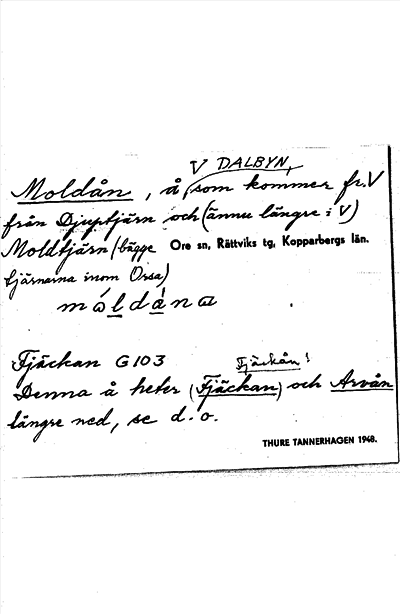 V DALBYN,
Moldån, å (som kommer fr. V
från Djuptjärn och (ännu längre i V)
Moldtjärn (bägge Ore sn, Rättviks tg, Kopparbergs län.
tjärnarna inom Orsa)
Fjäckan G103 Fjäckån!
Denna å heter (Fjäckan) och Arvån
längre ned, se d.o.
THURE TANNERHAGEN 1948.